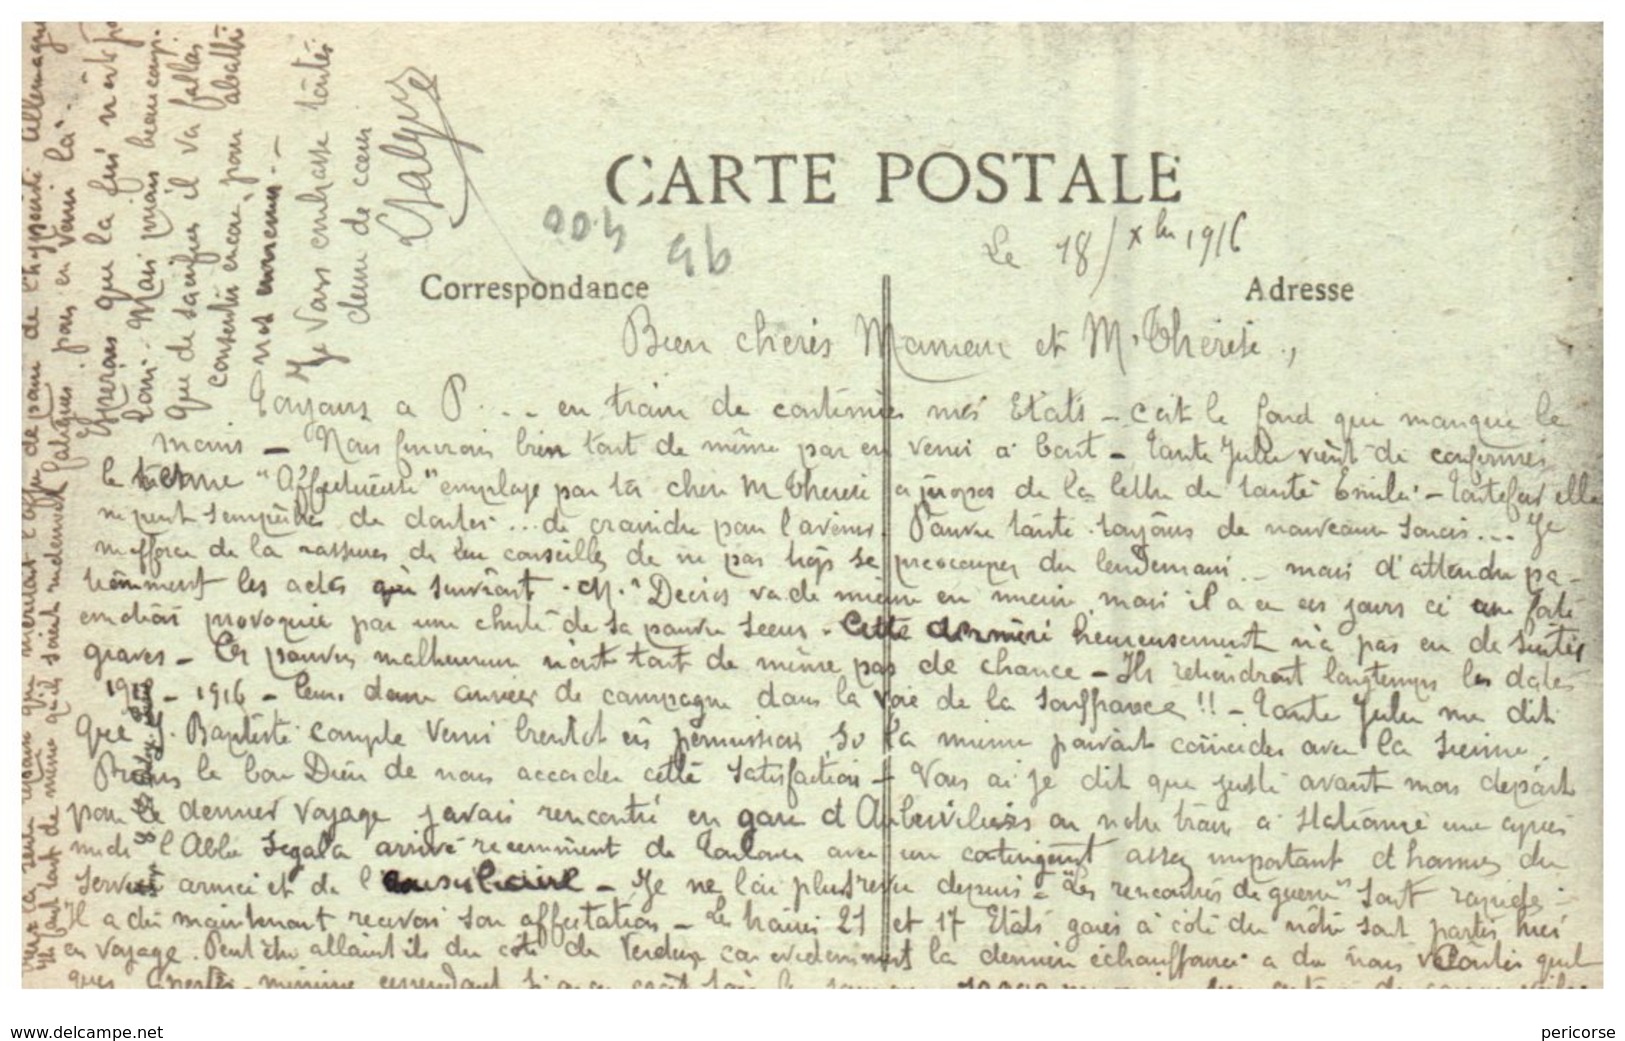 CARTE POSTALE
Le 18/Xbre 1916
Correspondance
Adresse
Bien cheres Maman et M. Therese,
Toujours a P... en train de continuer mes Etats - c'est le fond qui manque le
moins - Nous finirons bien tout de même par en venir a bout - Tante Julie vient de confirmer
le terme "Affectueuse" employe par ta chere M Therese a propos de la lettre de tante Emilie - Toutefois elle
ne peut s'empêcher de douter ... de craindre pour l'avenir. Pauvre tante toujours de nouveaux soucis ... Je
m'efforce de la rassurer de lui conseiller de ne pas trop se preoccuper du lendemain - mais d'attendre pa-
tiemment les actes qui suivront - M. va de mieux en mieux, mais il a eu ces jours ci une forte
emotion provoquée par une chute de sa pauvre soeur - Cette derniere heureusement n'a pas eu de suites
graves - Ces pauvres malheureux n'ont tout de même pas de chance - Ils retiendront longtemps les dates
- 1916 - leurs deux années de campagne dans la voie de la souffrance !! - Tante Julie me dit
que J. Baptiste compte venir bientot en permission, si la mienne pouvait coincider avec la sienne.
Prions le bon Dieu de nous accorder cette satisfaction - Vous ai je dit que juste avant mon depart
pour le dernier voyage j'avais rencontré en gare d'Aubervilliers ou notre train a stationné une apres
midi l'Abbe Segala arrivé recemment de Toulouse avec un contingent assez important d'hommes du
service armée et de l'auxiliaire - Je ne l'ai plus revu depuis - "Les rencontres de guerre" sont rapides -
Il a du maintenant recevoir son affectation - Les trains 21 et 17 Etats garés à coté du nôtre sont partis hier
en voyage. Peut être allaient ils du coté de Verdun car evidemment la derniere échauffourée a du nous couter quel
ques pertes
meriterait l'offre de paix de l'hypocrite Allemagne
il faut tout de même qu'ils soient fatigués pour en venir la.
Esperons que la fin n'est pas
loin - Mais mais beaucoup.
que de sacrifices il va falloir
consentir encore, pour abattre
nos ennemis. -
Je vous embrasse toutes
deux de coeur
www.delcampe.net
pericorse